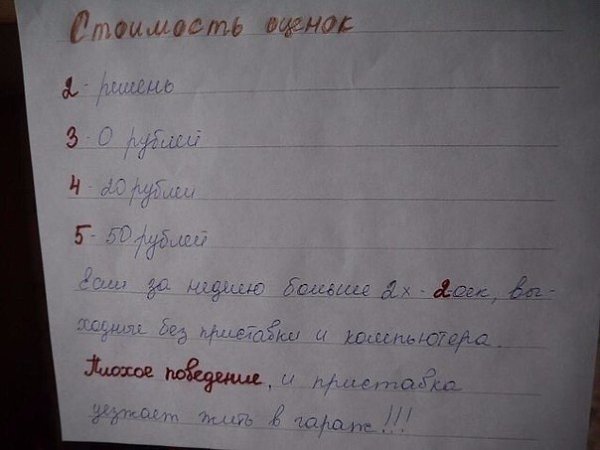 Стоимость оценок
2 - ремень
3 - 0 рублей
4 - 20 рублей
5 - 50 рублей
Если за неделю больше 2х - 2оек, вы-
ходные без приставки и компьютера.
Плохое поведение, и приставка
уезжает жить в гараж!!!